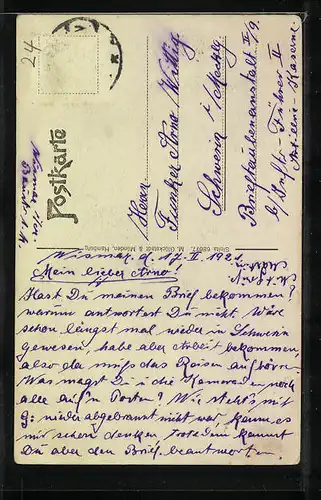 24
Postkarte
Herrn
Funker Arno Wittig
Schwerin i/Mecklg.
Brieftaubenanstalt II/9.
b/ Inftr. Führer II
Artillerie-Kaserne
M. Glückstadt & Münden, Hamburg
Wismar, d. 17. II. 192
Mein lieber Arno!
Hast Du meinen Brief bekommen?
warum antwortest Du nicht. Wäre
schon längst mal wieder in Schwerin
gewesen, habe aber Arbeit bekommen,
also da muß das Reisen aufhören.
Was magst Du u die Kameraden noch
alle auf'n Posten? Wie steht's mit
G: wieder abgebrannt nicht war, kann es
mir schon denken, trotzdem kannst
Du aber den Brief beantworten